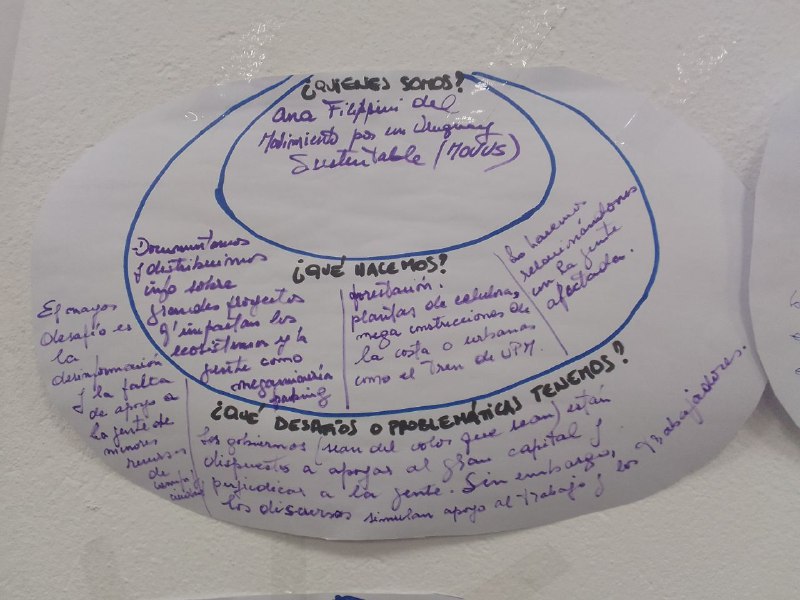 ¿QUIENES SOMOS?
Ana Filippini del
Movimiento por un Uruguay
Sustentable (MOVUS)
¿QUÉ HACEMOS?
Documentamos
y distribuimos
info sobre
grandes proyectos
q' impactan los
ecosistemas y la
gente como
megaminería
forestación.
plantas de celulosa,
mega construcciones de
la costa o urbanas
como el Tren de UPM.
Lo hacemos
relacionándonos
con la gente
afectada.
¿QUÉ DESAFÍOS O PROBLEMÁTICAS TENEMOS?
El mayor
desafío es
la
desinformación
y la falta
de apoyo a
la gente de
menores
recursos
de
Los gobiernos (sean del color que sean) están
dispuestos a apoyar al gran capital y
perjudicar a la gente. Sin embargo,
los discursos simulan apoyo al trabajo y los trabajadores.